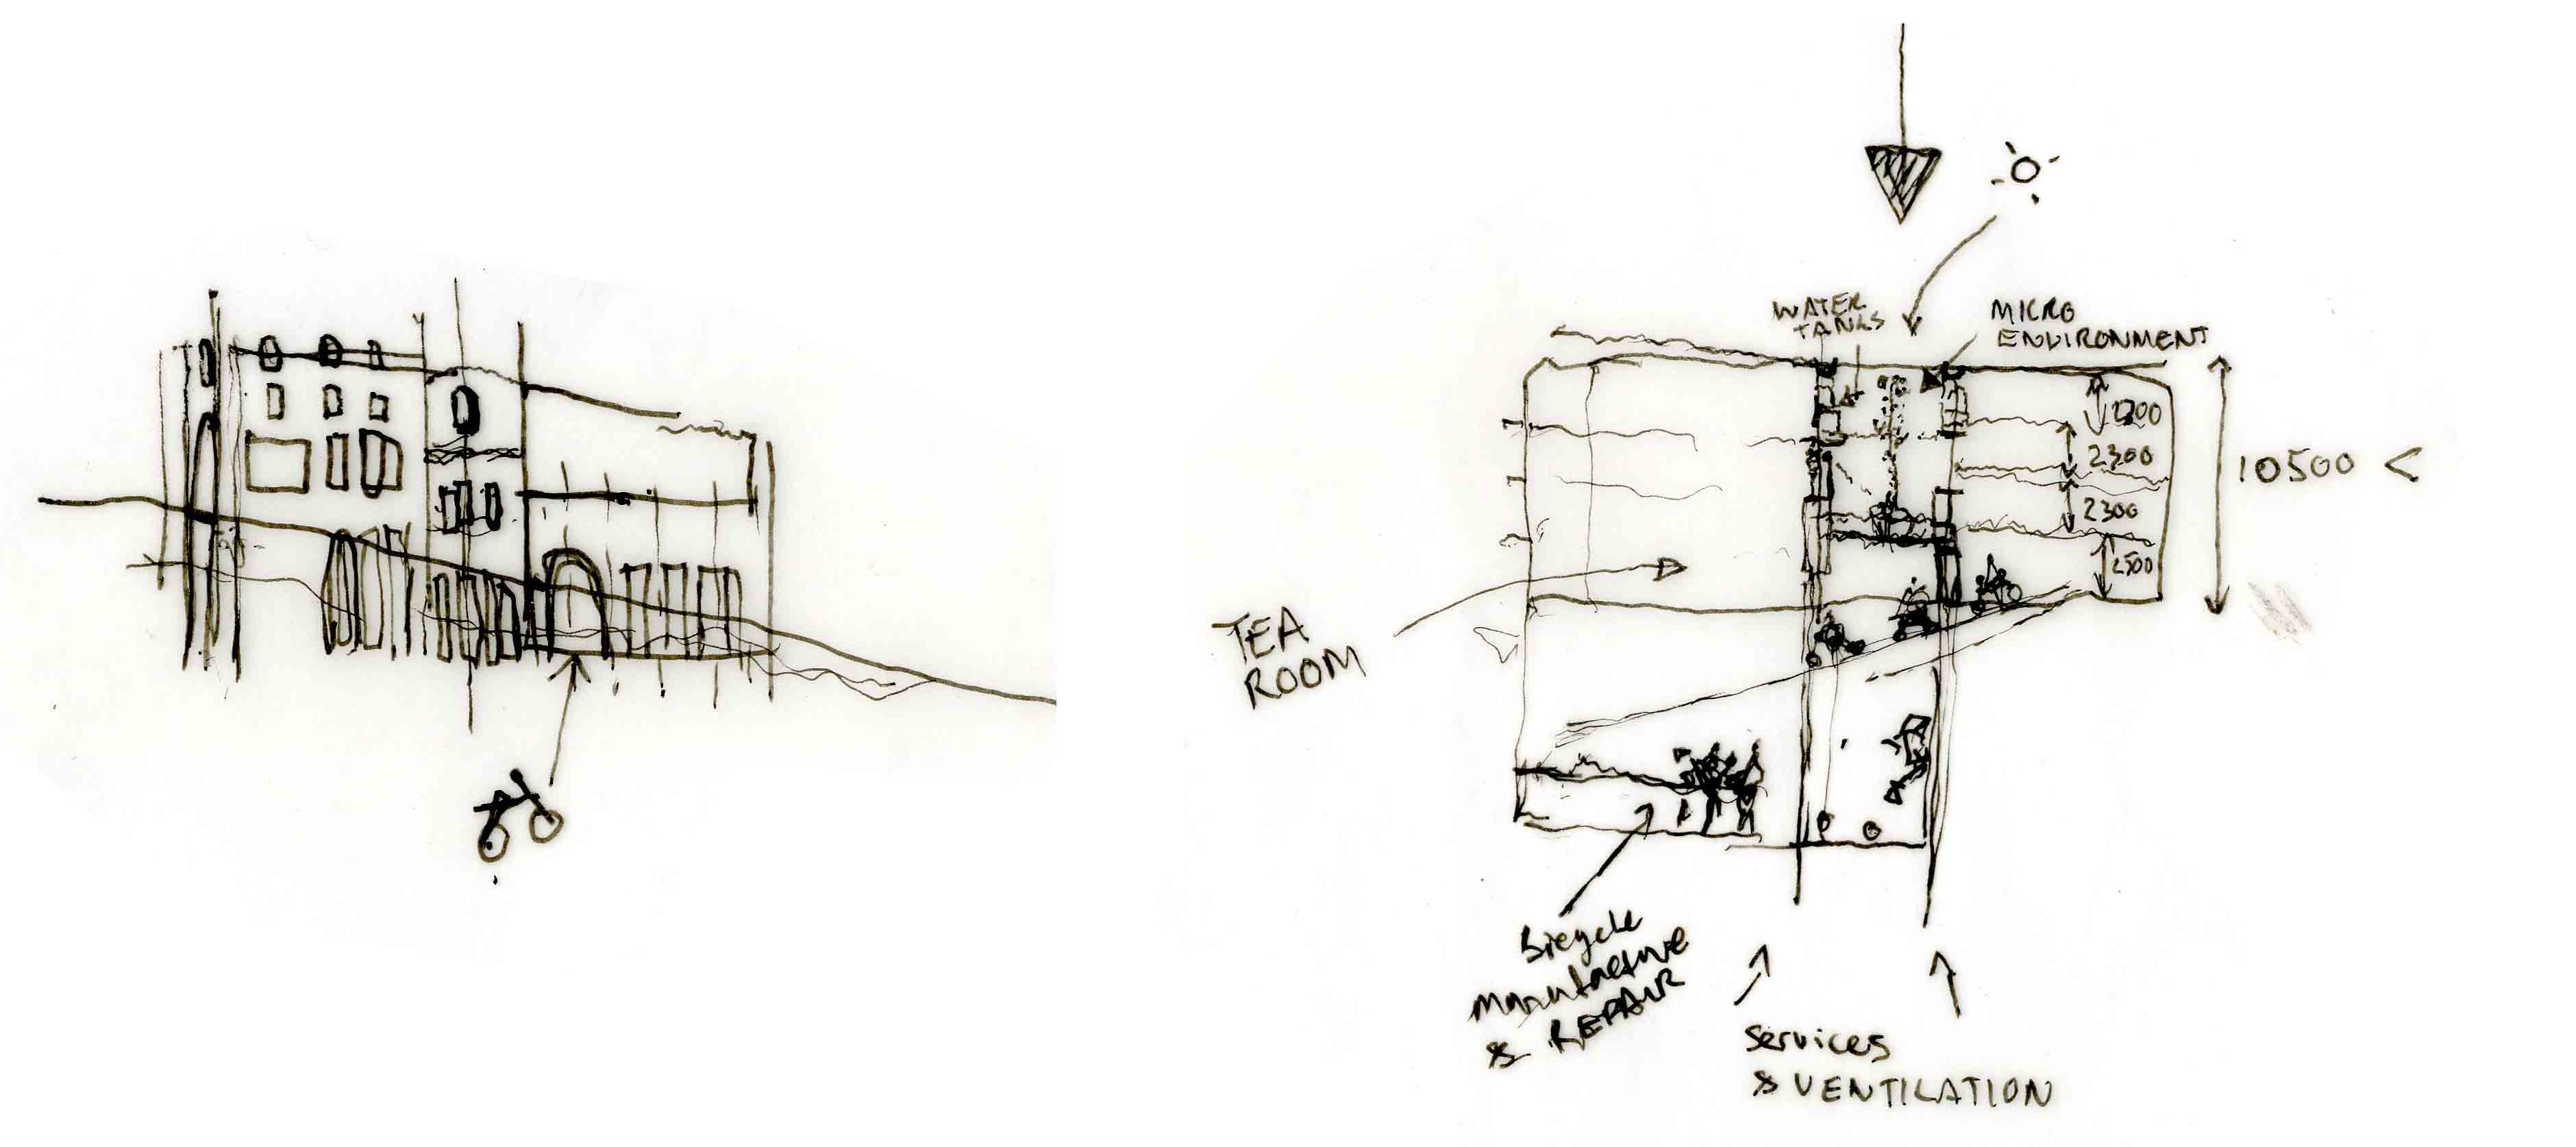 WATER
TANKS
MICRO
ENVIRONMENT
2300
10500 <
2300
TEA
ROOM
Bicycle
manufacture
& REPAIR
Services
& VENTILATION